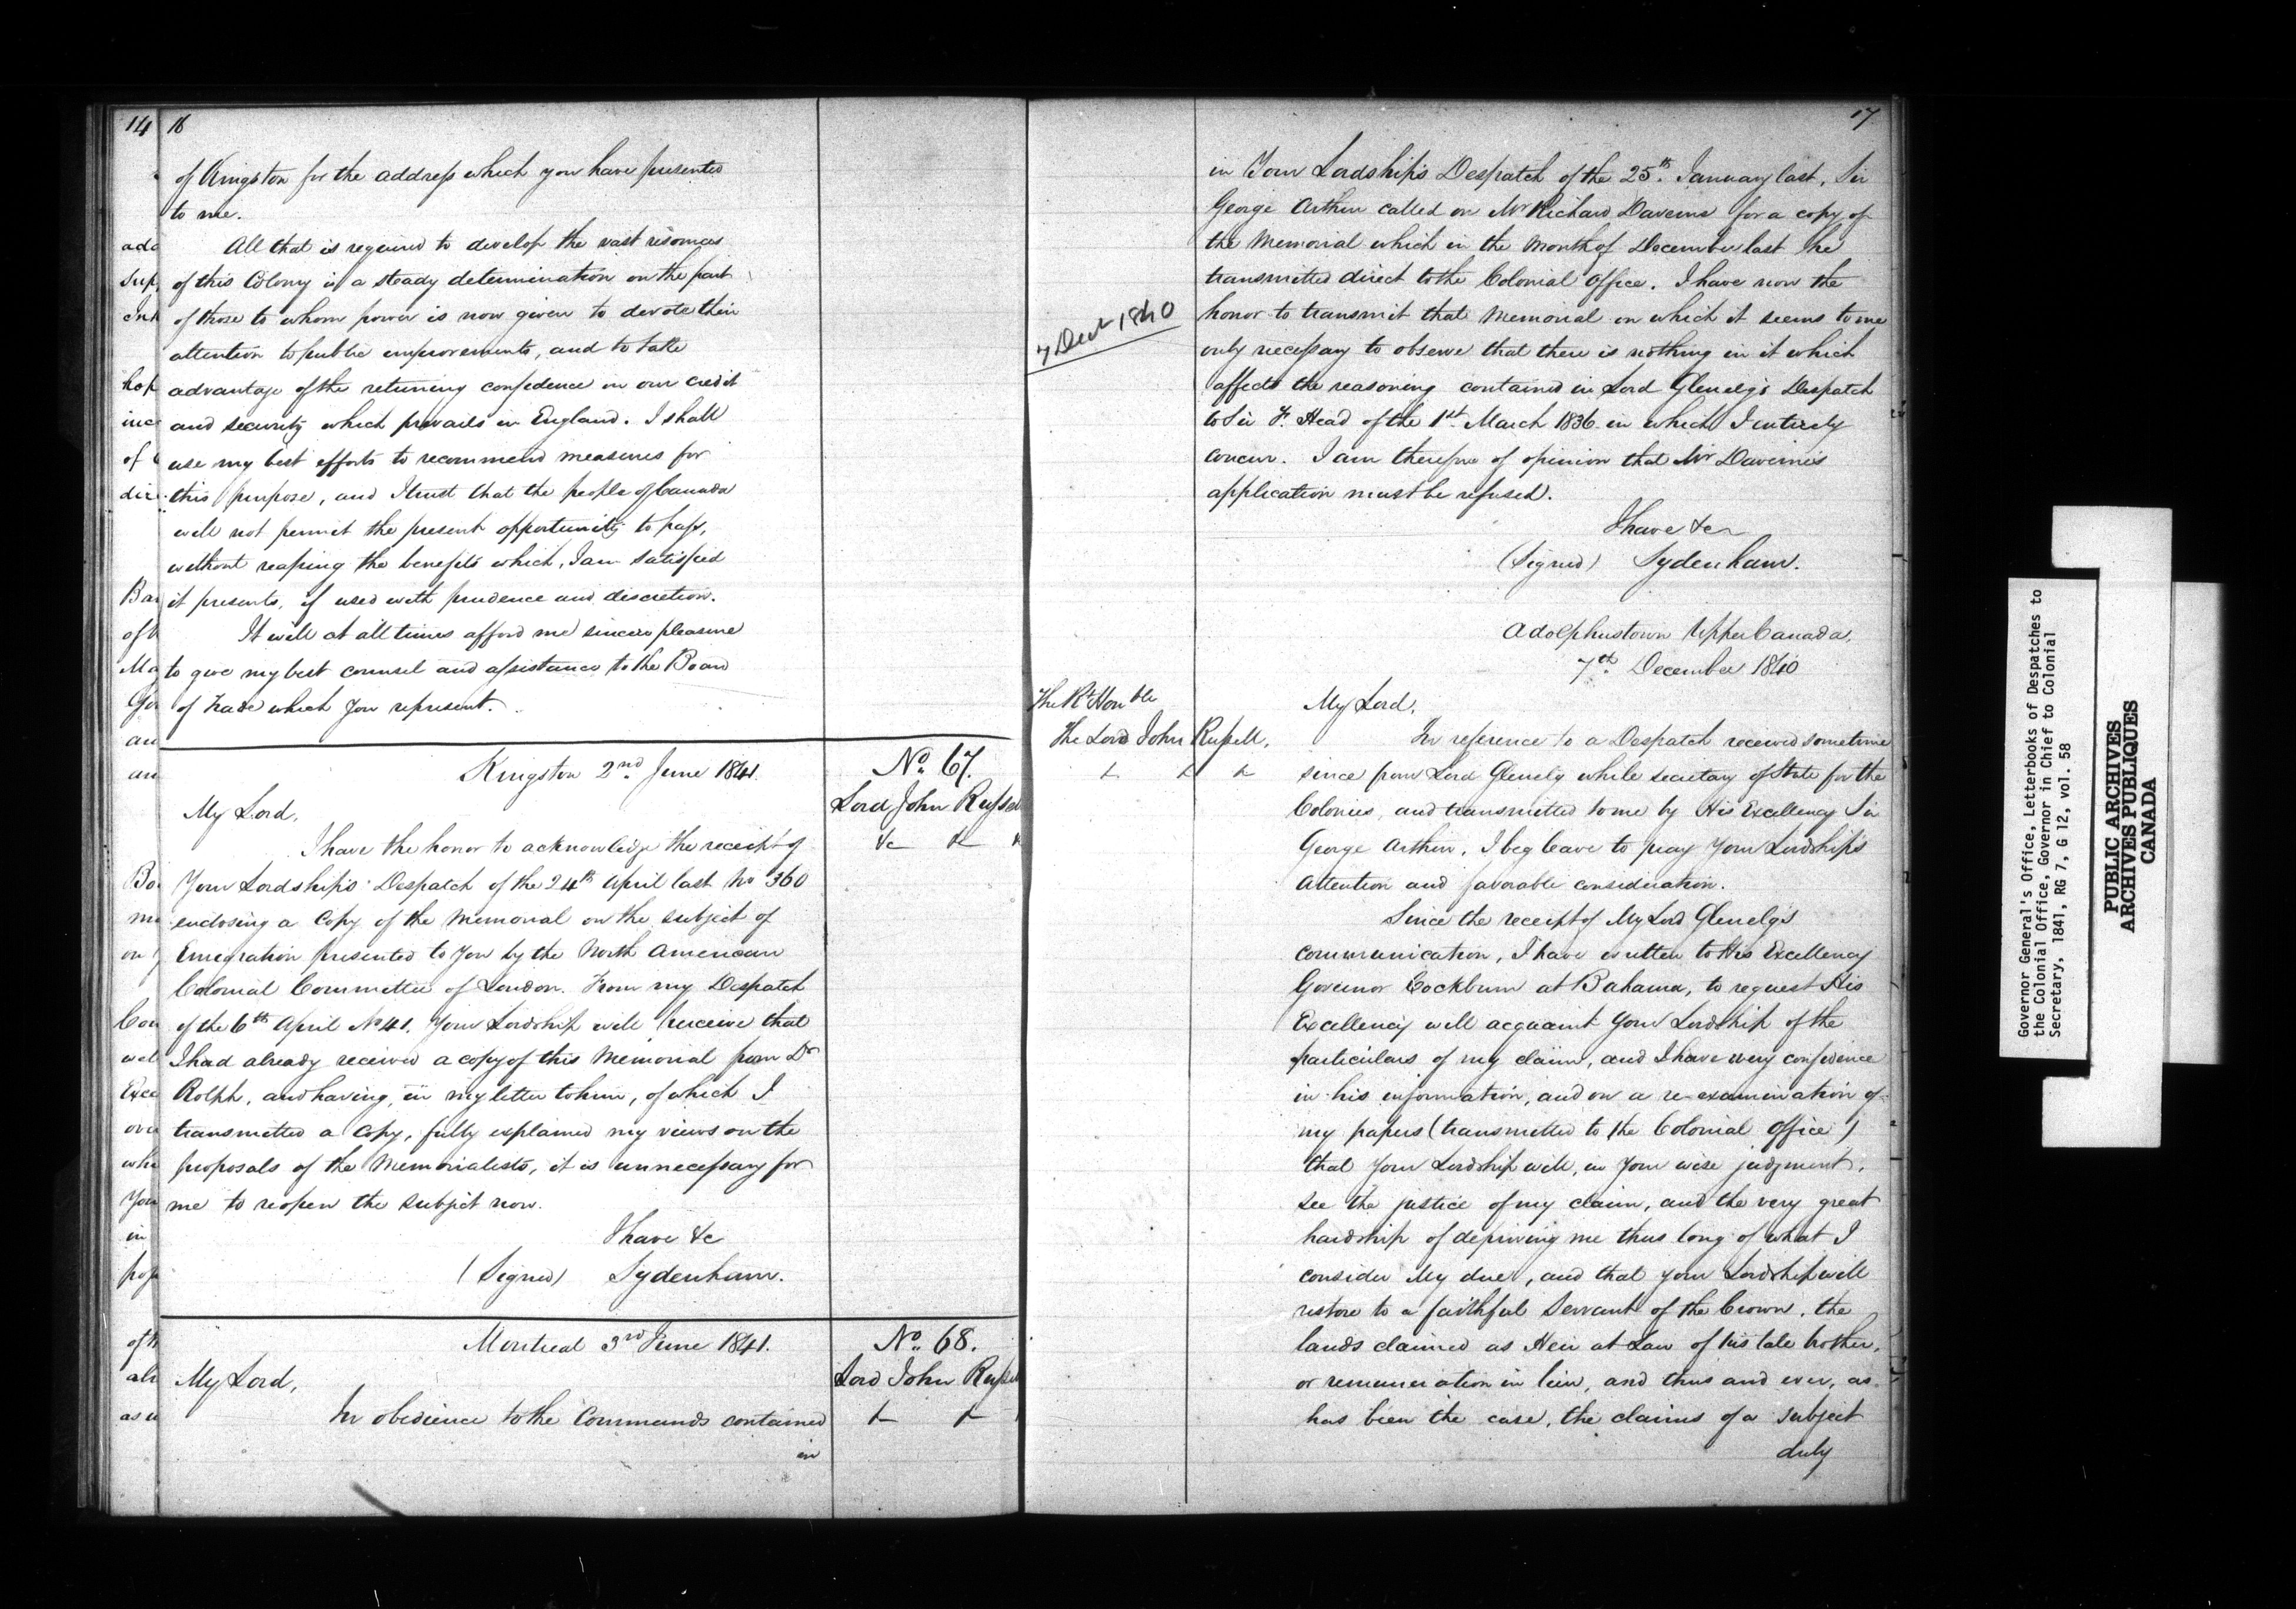 16
of Kingston for the address which you have presented
to me.
All that is required to develop the vast resources
of this Colony is a steady determination on the part
of those to whom power is now given to devote their
attention to public improvements, and to take
advantage of the returning confidence in our credit
and security which prevails in England. I shall
use my best efforts to recommend measures for
this purpose, and I trust that the people of Canada
will not permit the present opportunity to pass,
without reaping the benefits which, I am satisfied
it presents, if used with prudence and discretion.
It will at all times afford me sincere pleasure
to give my best counsel and assistance to the Board
of Trade which you represent.
Kingston 2nd June 1841.
No. 67.
Lord John Russell
&c &c &
My Lord,
I have the honor to acknowledge the receipt of
Your Lordship's Despatch of the 24th April last No 360
enclosing a Copy of the Memorial on the subject of
Emigration presented to You by the North American
Colonial Committee of London. From my Despatch
of the 6th April No 41. Your Lordship will perceive that
I had already received a copy of this Memorial from Dr
Rolph, and having, in my letter to him, of which I
transmitted a Copy, fully explained my views on the
proposals of the Memorialists, it is unnecessary for
me to reopen the subject now.
I have &c
(Signed) Sydenham.
Montreal 3rd June 1841.
No. 68.
Lord John Russell
& &
My Lord,
In obedience to the Commands contained
in
17
in Your Lordship's Despatch of the 25th January last, Sir
George Arthur called on Mr Richard Daverne for a copy of
the Memorial which in the Month of December last he
transmitted direct to the Colonial Office. I have now the
honor to transmit that Memorial on which it seems to me
7 Decr 1840
only necessary to observe that there is nothing in it which
affects the reasoning contained in Lord Glenelg's Despatch
to Sir F. Head of the 1st March 1836 in which I entirely
concur. I am therefore of opinion that Mr Daverne's
application must be refused.
I have &c
(Signed) Sydenham.
Adolphustown Upper Canada,
7th December 1840
The Rt Honble
The Lord John Russell,
& & &
My Lord,
In reference to a Despatch received sometime
since from Lord Glenelg while secretary of State for the
Colonies, and transmitted to me by His Excellency Sir
George Arthur, I beg leave to pray Your Lordship's
Attention and favorable consideration.
Since the receipt of My Lord Glenelg's
communication, I have written to His Excellency
Governor Cockburn at Bahama, to request His
Excellency will acquaint Your Lordship of the
particulars of my claim, and I have every confidence
in his information, and on a re-examination of
my papers (transmitted to the Colonial Office)
that Your Lordship will, in Your wise judgment,
see the justice of my claim, and the very great
hardship of depriving me thus long of what I
consider My due, and that your Lordship will
restore to a faithful Servant of the Crown, the
lands claimed as Heir at Law of his late brother,
or remuneration in lieu, and thus and ever, as
has been the case, the claims of a subject
duly
14
Governor General's Office, Letterbooks of Despatches to
the Colonial Office, Governor in Chief to Colonial
Secretary, 1841, RG 7, G 12, vol. 58
PUBLIC ARCHIVES
ARCHIVES PUBLIQUES
CANADA